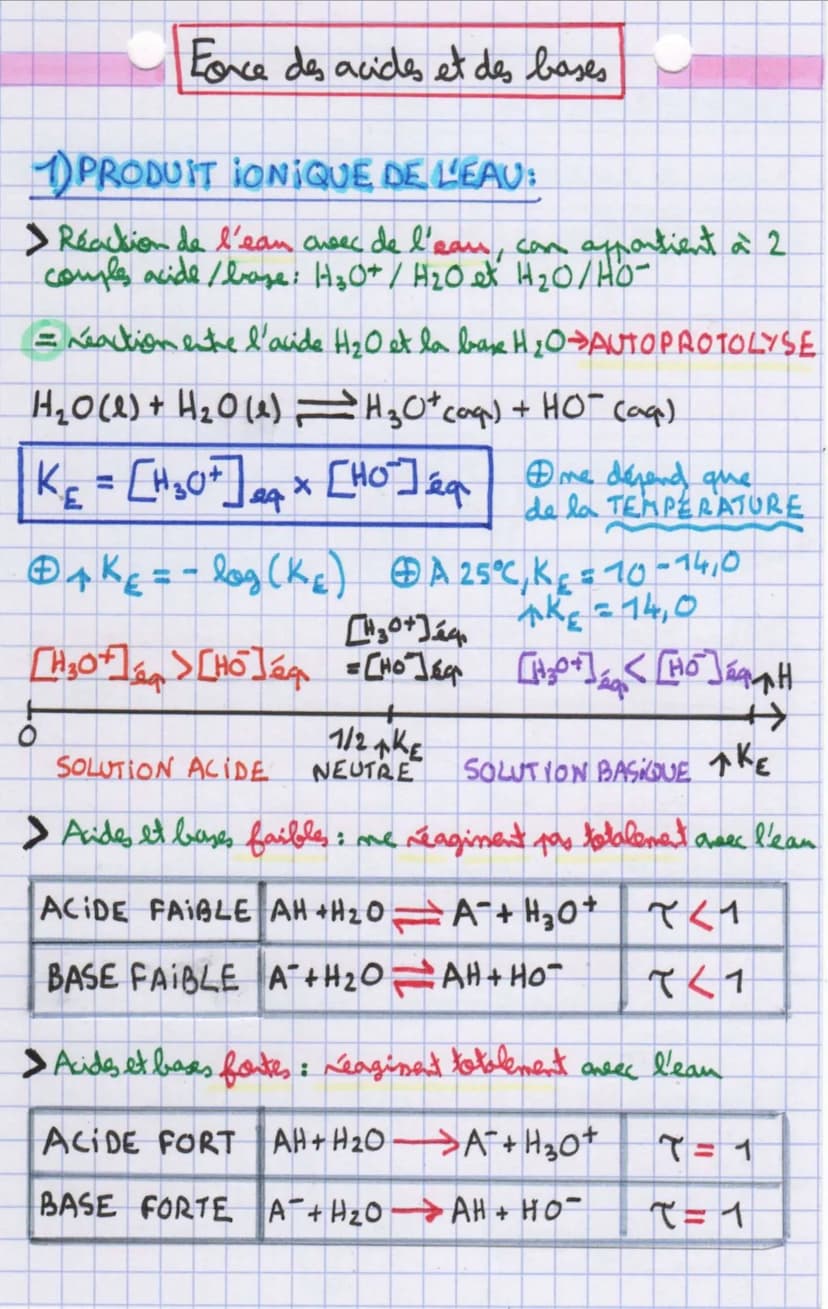 Force des acides et des bases
1) PRODUIT IONIQUE DE L'EAU :
> Réaction de l'eau avec de l'eau, car appartient à 2
couples acide / base : H₃O⁺ / H₂O et H₂O / HO⁻
= réaction entre l'acide H₂O et la base H₂O → AUTOPROTOLYSE
H₂O(l) + H₂O(l) ⇌ H₃O⁺(aq) + HO⁻(aq)
K_E = [H₃O⁺]éq × [HO⁻]éq
⊕ ne dépend que
de la TEMPÉRATURE
⊕ pK_E = - log(K_E) ⊕ A 25°C, K_E = 10⁻¹⁴,⁰
pK_E = 14,0
[H₃O⁺]éq > [HO⁻]éq
[H₃O⁺]éq
= [HO⁻]éq
[H₃O⁺]éq < [HO⁻]éq pH
0 1/2 pK_E pK_E
SOLUTION ACIDE NEUTRE SOLUTION BASIQUE
> Acides et bases faibles : ne réagissent pas totalement avec l'eau
ACIDE FAIBLE AH + H₂O ⇌ A⁻ + H₃O⁺ τ < 1
BASE FAIBLE A⁻ + H₂O ⇌ AH + HO⁻ τ < 1
> Acides et bases fortes : réagissent totalement avec l'eau
ACIDE FORT AH + H₂O → A⁻ + H₃O⁺ τ = 1
BASE FORTE A⁻ + H₂O → AH + HO⁻ τ = 1